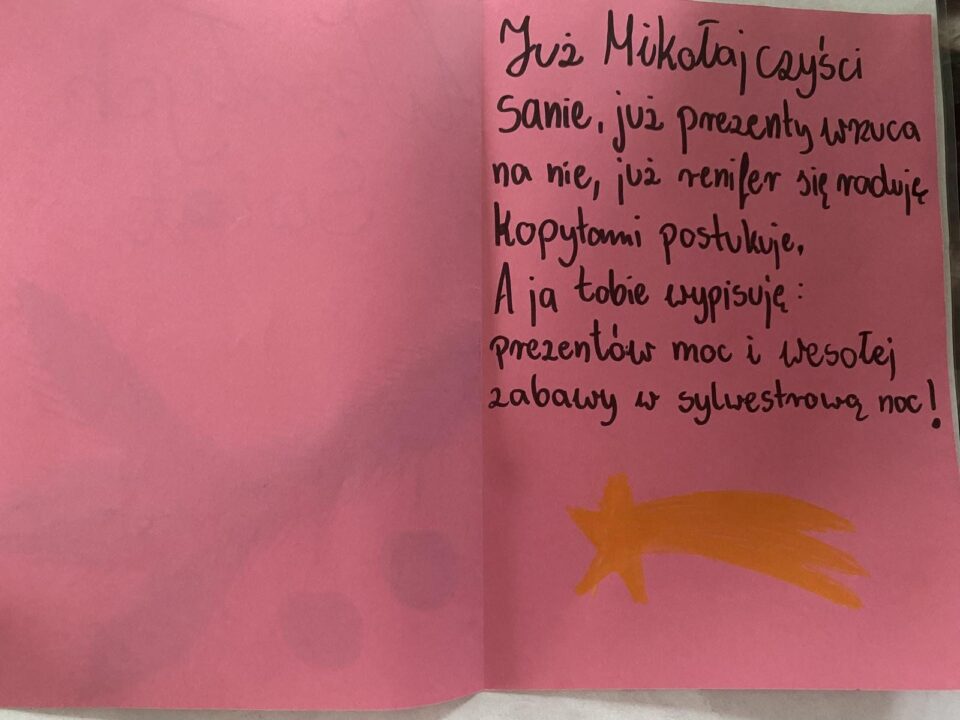 Już Mikołaj czyści
sanie, już prezenty wrzuca
na nie, już renifer się raduję
kopytami postukuje.
A ja tobie wypisuję:
prezentów moc i wesołej
zabawy w sylwestrową noc!